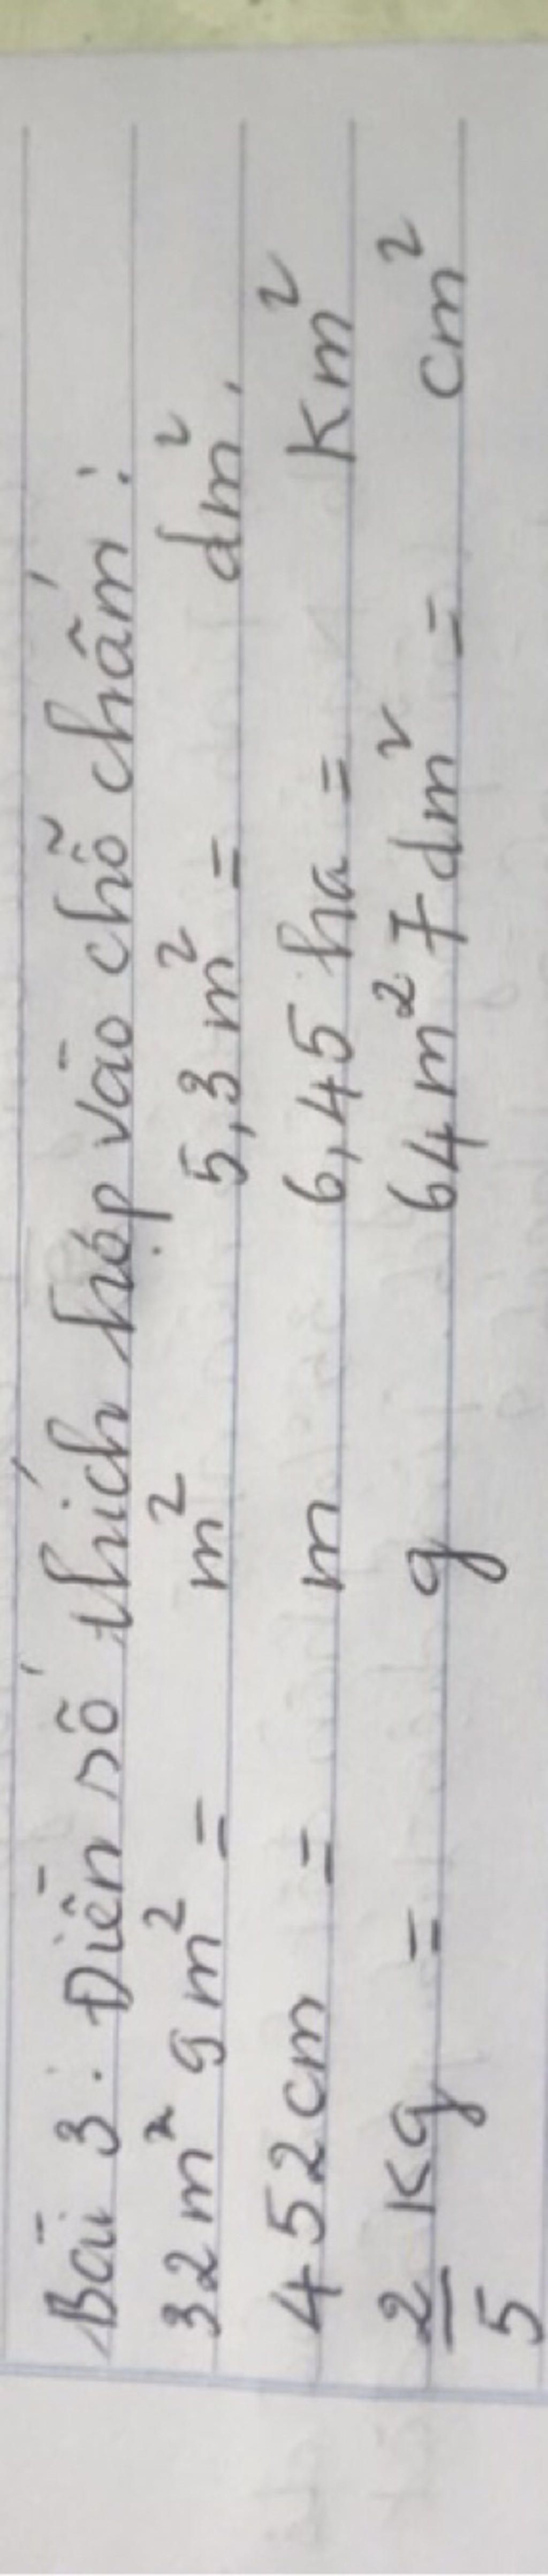 Bài 3: Điền số thích hợp vào chỗ chấm:
32m² 9m² = m² 5,3m² = dm².
452cm = m 6,45 ha = km²
2/5 kg = g 64m² 7dm² = cm²